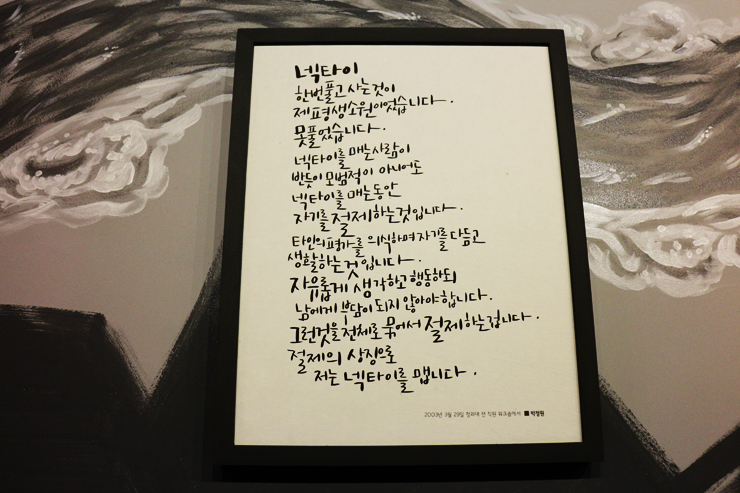 넥타이
한번풀고 사는것이
제평생소원이었습니다.
못풀었습니다.
넥타이를 매는사람이
반듯이 모범적이 아니어도
넥타이를 매는동안
자기를 절제하는것입니다.
타인의평가를 의식하며 자기를 다듬고
생활하는것입니다.
자유롭게 생각하고 행동하되
남에게 부담이 되지 않아야합니다.
그런것을 전체로 묶어서 절제하는겁니다.
절제의 상징으로
저는 넥타이를 맵니다.
2003년 3월 29일 청와대 전 직원 워크숍에서 ■ 박정원